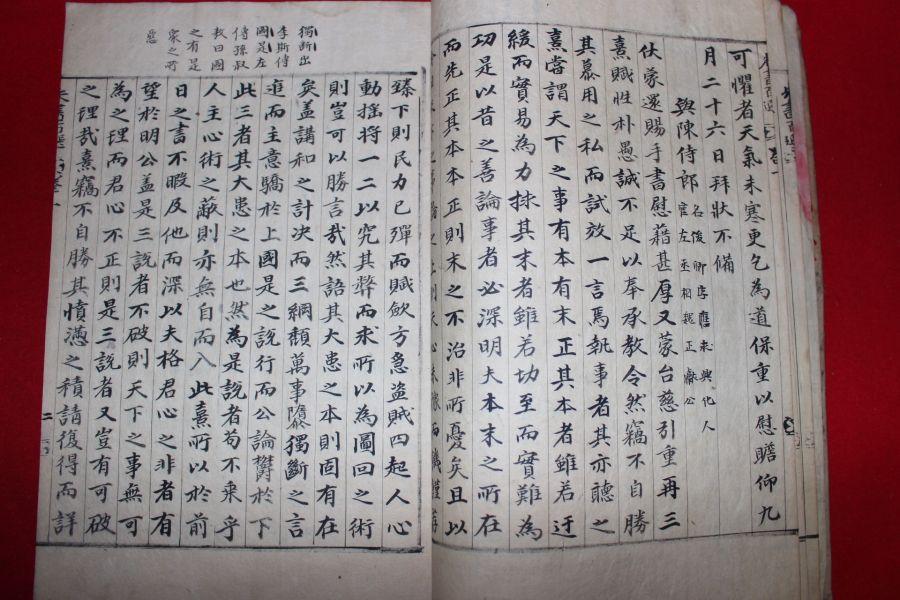 可懼者天氣未寒更乞為道保重以慰瞻仰九
月二十六日拜狀不備
與陳侍郎 名俊卿字應求興化人
官左丞相諡正獻公
伏蒙還賜手書慰藉甚厚又蒙台慈引重再三
熹賦性朴愚誠不足以奉承教令然竊不自勝
其慕用之私而試效一言焉執事者其亦聽之
熹嘗謂天下之事有本有末正其本者雖若迂
緩而實易為力捄其末者雖若切至而實難為
功是以昔之善論事者必深明夫本末之所在
而先正其本本正則末之不治非所憂矣且以
獨斷出
李斯傳
國是左
傳孫叔
敖曰國
之有是
衆之所
惡
臻下則民力已殫而賦斂方急盜賊四起人心
動搖將一二以究其弊而求所以為圖回之術
則豈可以勝言哉然語其大患之本則固有在
矣盖講和之計決而三綱頹萬事隳獨斷之言
進而主意驕於上國是之說行而公論鬱於下
此三者其大患之本也然為是說者苟不乗乎
人主心術之蔽則亦無自而入此熹所以於前
日之書不暇及他而深以夫格君心之非者有
望於明公盖是三說者不破則天下之事無可
為之理而君心不正則是三說者又豈有可破
之理哉熹竊不自勝其憤懣之積請復得而詳
朱書百選 卷一 二